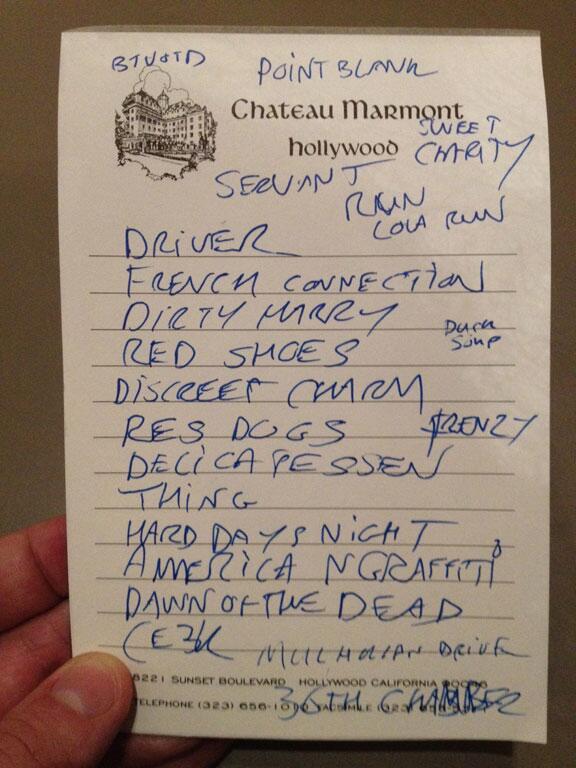 BTVOTD
POINT BLANK
Chateau Marmont
hollywood
SWEET
CHARITY
SERVANT
RUN
LOLA RUN
DRIVER
FRENCH CONNECTION
DIRTY HARRY
Duck
Soup
RED SHOES
DISCREET CHARM
RES DOGS
FRENZY
DELICATESSEN
THING
HARD DAYS NIGHT
AMERICAN GRAFFITI
DAWN OF THE DEAD
CE3K
MULHOLLAN DRIVE
8221 SUNSET BOULEVARD HOLLYWOOD CALIFORNIA
36TH CHAMBER
TELEPHONE (323) 656-1010 FACSIMILE (323)